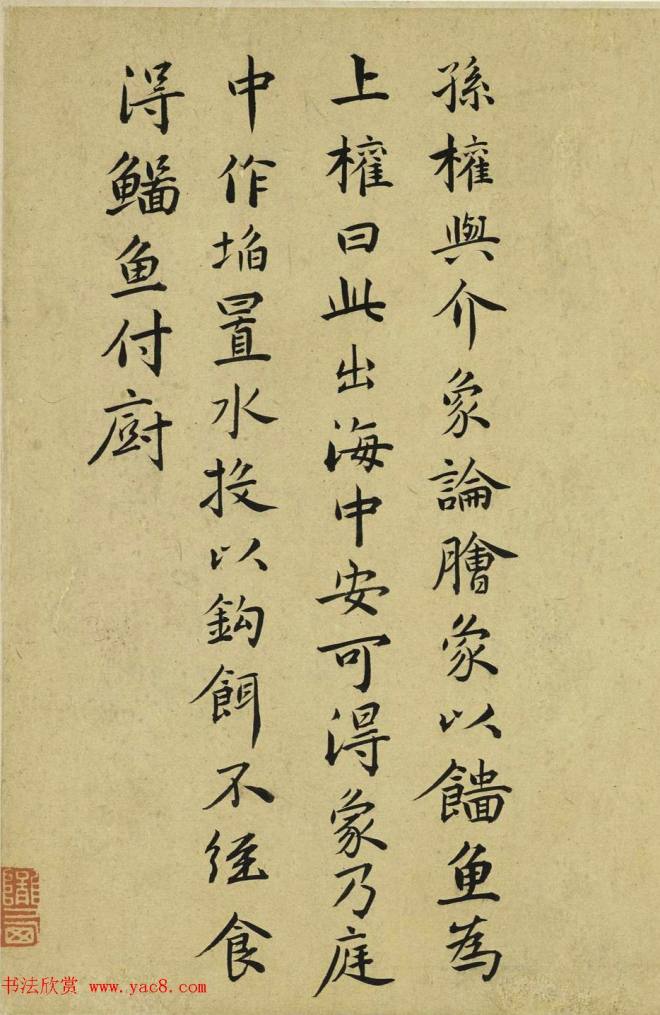 孫權與介象論膾象以�

魚為
上權曰此出海中安可得象乃庭
中作埳置水投以鈎餌不經食
得鯔魚付廚
书法欣赏 www.yac8.com